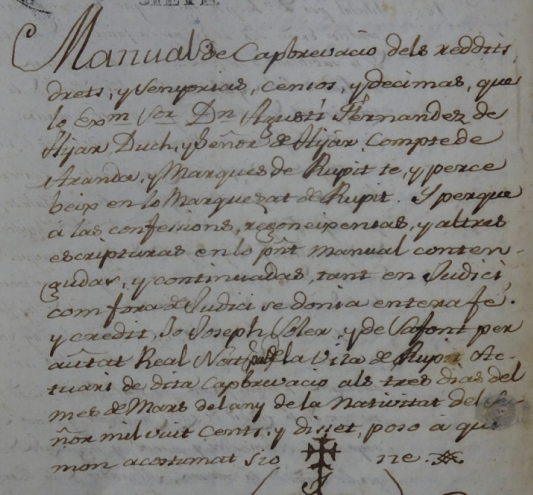 Manual de Capbrevacio dels reddits,
drets, y senyorias, censos, y decimas, que
lo Exm. Sor. Dn. Agustí Fernandez de
Hijar Duch, y Señor de Hijar. Compte de
Aranda, y Marques de Rupit te, y perce
beix en lo Marquesat de Rupit. Y perque
á las confessions, regoneixensas, y altres
escripturas en lo pnt manual conten-
gudas, y continuadas, tant en Judici,
com fora de Judici se donia entera fé.
y credit, Jo Joseph Soler, y de Safont per
autat Real Not pub de la Vila de Rupit Ac-
tuari de dita Capbrevacio als tres dias del
mes de Mars del any de la Nativitat del Se-
ñor mil vuit cents, y disset, poso á qui
mon acostumat Sig ne.